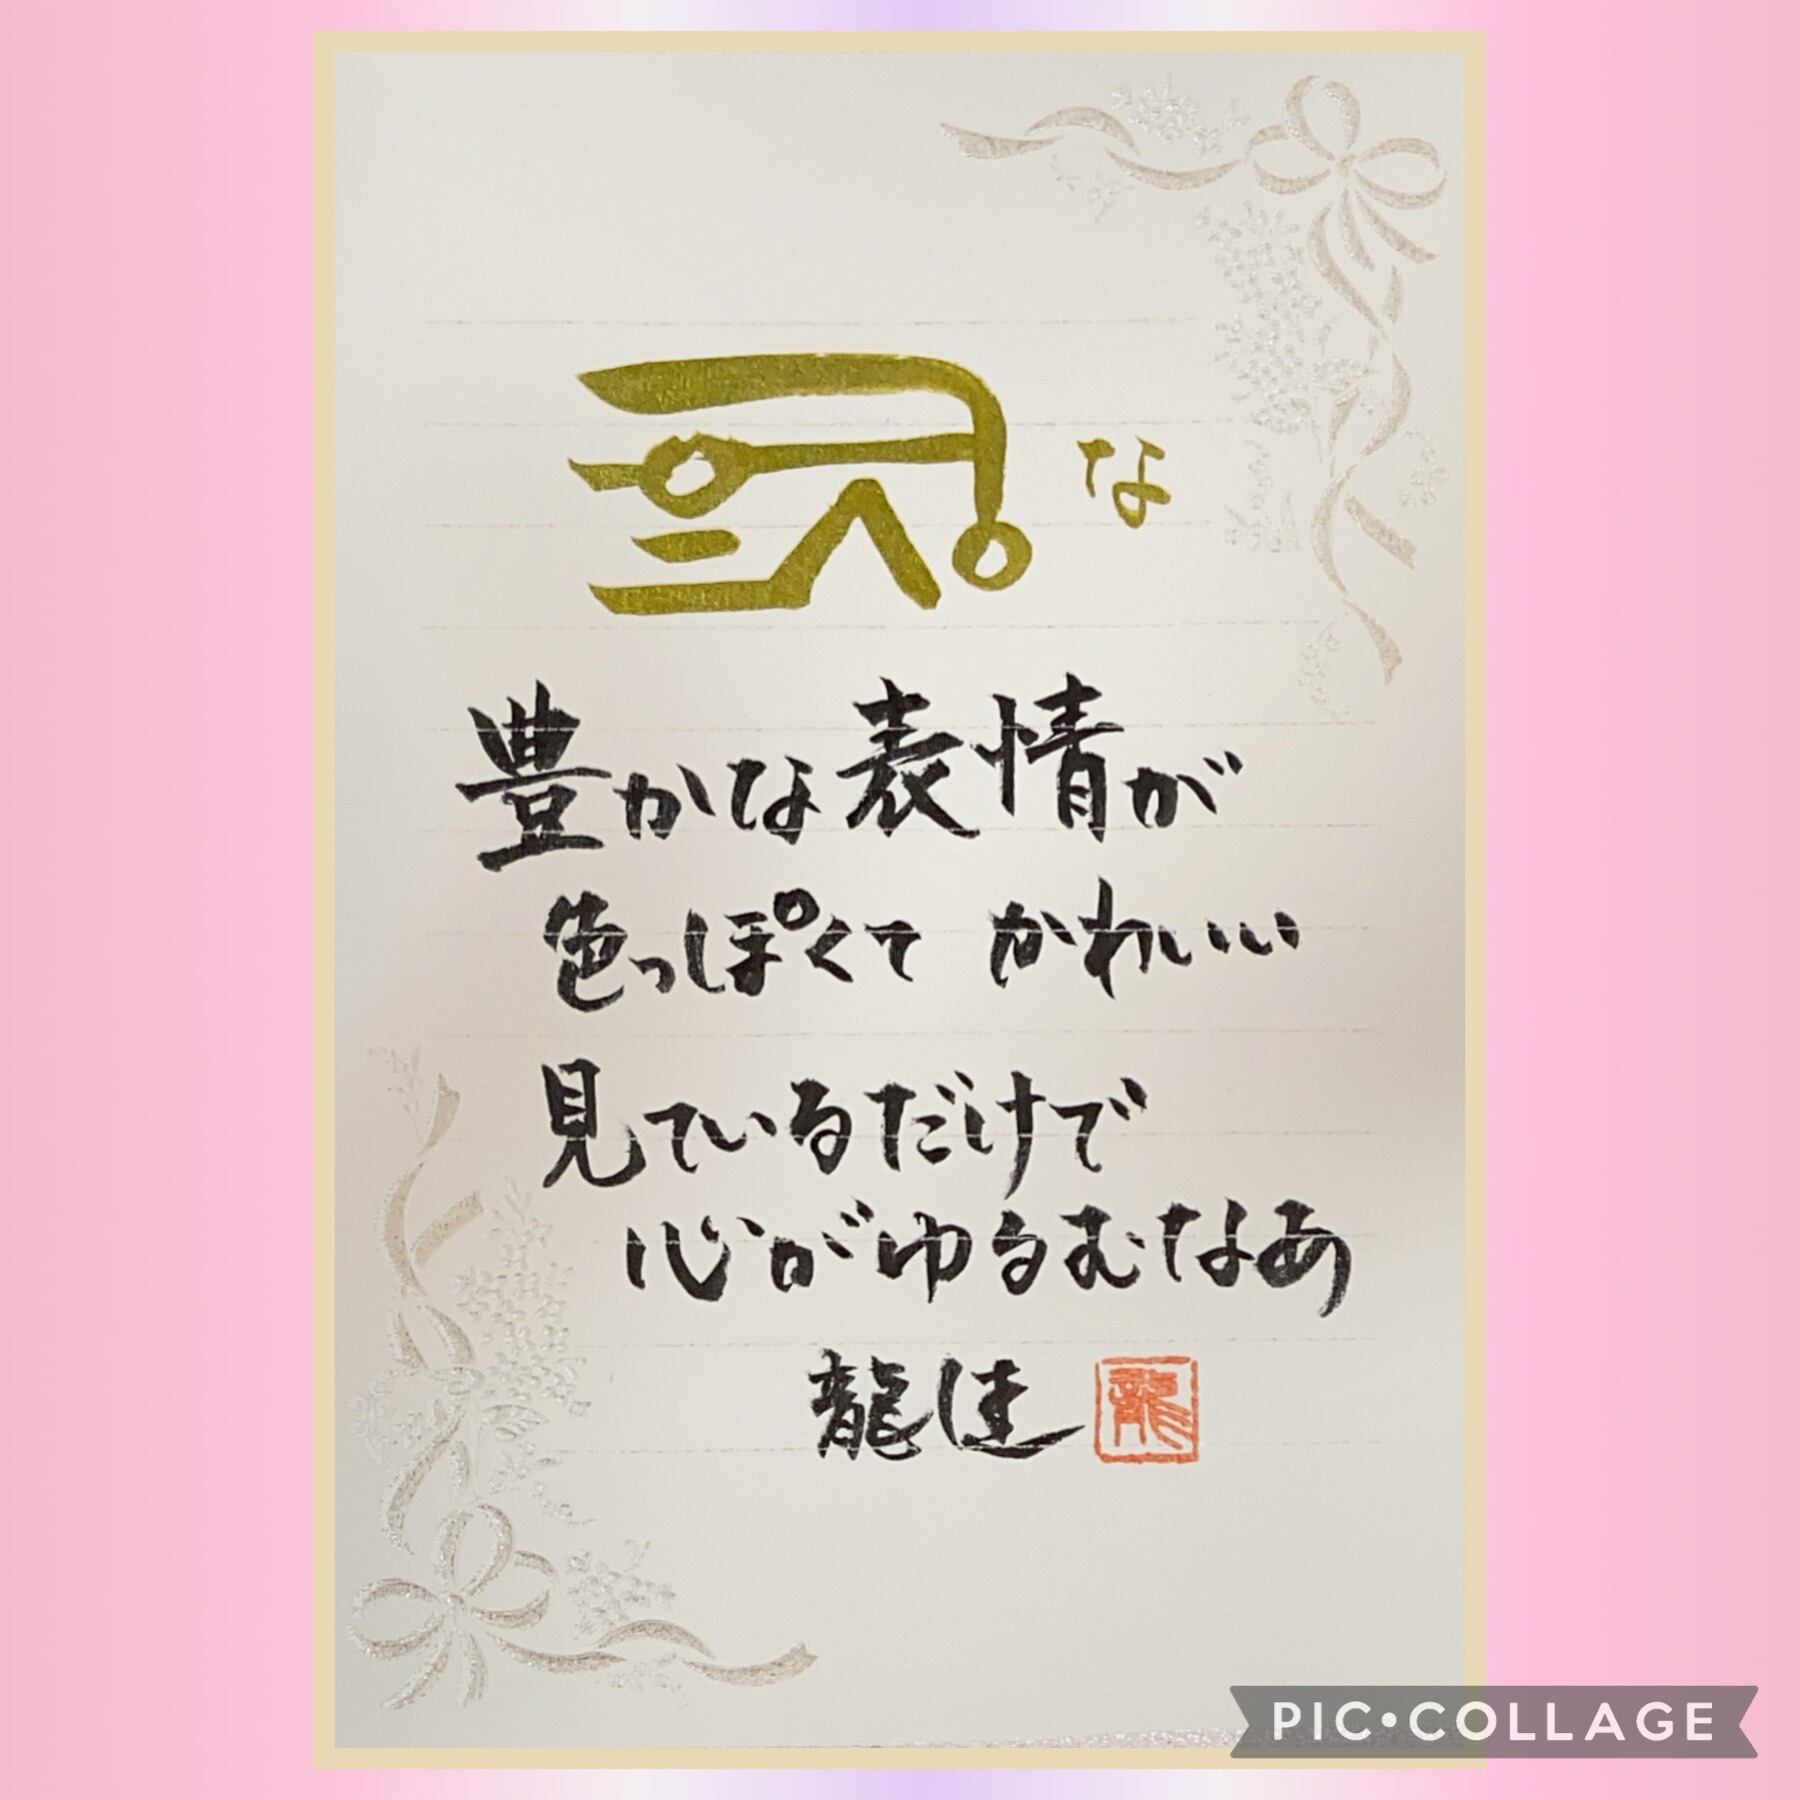 な
豊かな表情が
色っぽくて かわいい
見ているだけで
心がゆるむなあ
龍佳
龍
PIC•COLLAGE